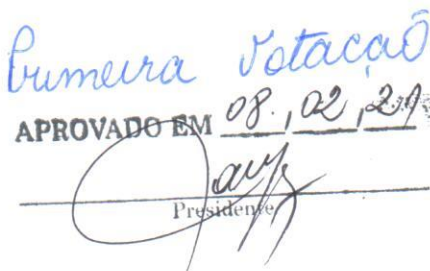 Primeira Votação
APROVADO EM 08, 02, 21
Presidente